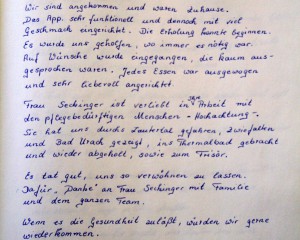 Wir sind angekommen und waren zuhause.
Das App. sehr funktionell und dennoch mit viel
Geschmack eingerichtet. Die Erholung konnte beginnen.
Es wurde uns geholfen, wo immer es nötig war.
Auf Wünsche wurde eingegangen, die kaum aus-
gesprochen waren. Jedes Essen war ausgewogen
und sehr liebevoll angerichtet.
Frau Seckinger ist verliebt in ihre Arbeit mit
den pflegebedürftigen Menschen - Hochachtung -.
Sie hat uns durchs Lautertal gefahren, Zwiefalten
und Bad Urach gezeigt, ins Thermalbad gebracht
und wieder abgeholt, sowie zum Frisör.
Es tat gut, uns so verwöhnen zu lassen.
Dafür "Danke" an Frau Seckinger mit Familie
und dem ganzen Team.
Wenn es die Gesundheit zuläßt, würden wir gerne
wiederkommen.